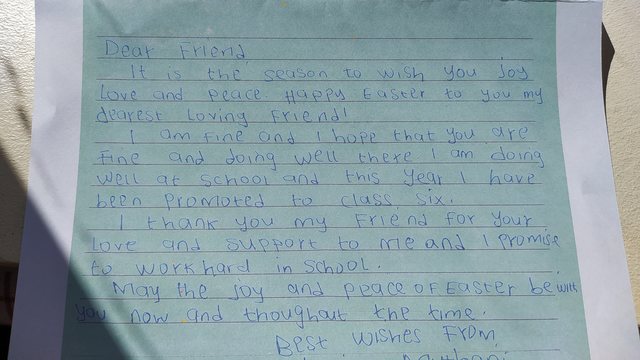 Dear Friend
It is the season to wish you joy
Love and peace. Happy Easter to you my
dearest loving Friend!
I am fine and I hope that you are
Fine and doing well there I am doing
well at school and this year I have
been promoted to class six.
I thank you my Friend for your
Love and support to me and I promise
to work hard in school.
May the joy and peace of Easter be with
you now and thoughout the time.
Best wishes From